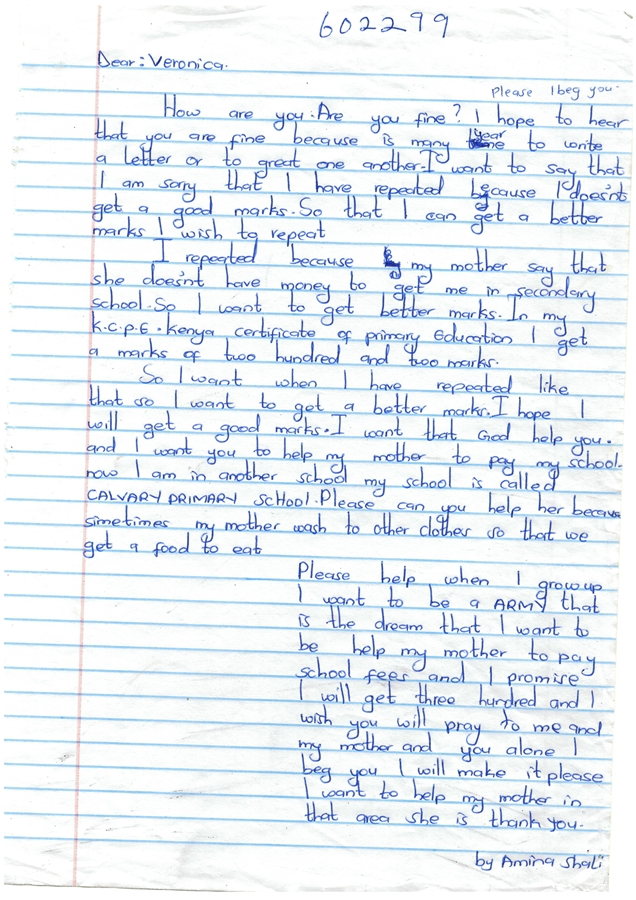 602299
Dear: Veronica.
Please I beg you.
How are you. Are you fine? I hope to hear
that you are fine because is many year to write
a letter or to great one another. I want to say that
I am sorry that I have repeated because I doesn't
get a good marks. So that I can get a better
marks I wish to repeat
I repeated because my mother say that
she doesn't have money to get me in secondary
school. So I want to get better marks. In my
K.C.P.E. Kenya certificate of primary Education I get
a marks of two hundred and two marks.
So I want when I have repeated like
that so I want to get a better marks. I hope I
will get a good marks. I want that God help you.
and I want you to help my mother to pay my school.
now I am in another school my school is called
CALVARY PRIMARY SCHOOL. Please can you help her because
simetimes my mother wash to other clothes so that we
get a food to eat
Please help when I grow up
I want to be a ARMY that
is the dream that I want to
be help my mother to pay
school fees and I promise
I will get threo hundred and I
wish you will pray to me and
my mother and you alone I
beg you I will make it please
I want to help my mother in
that area she is thank you.
by Amina Shali